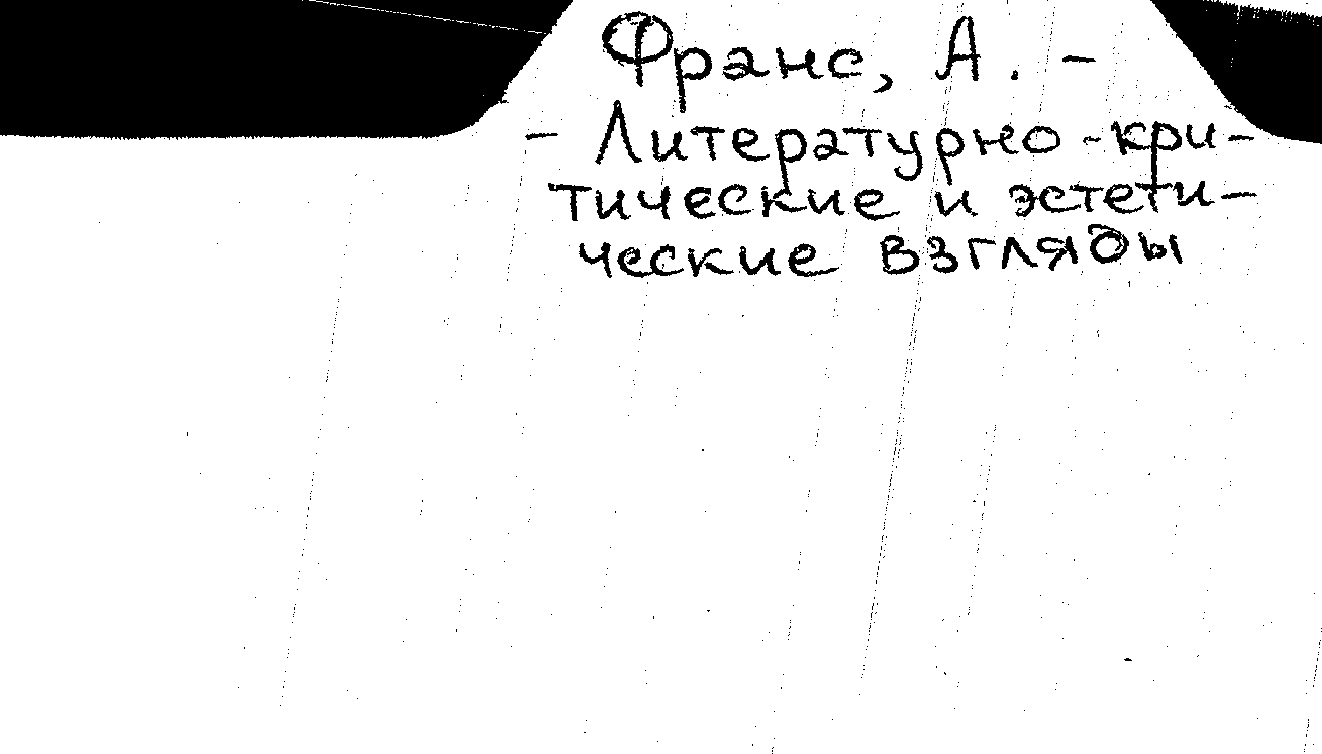 Франс, А. -
- Литературно-кри-
тические и эстети-
ческие взгляды